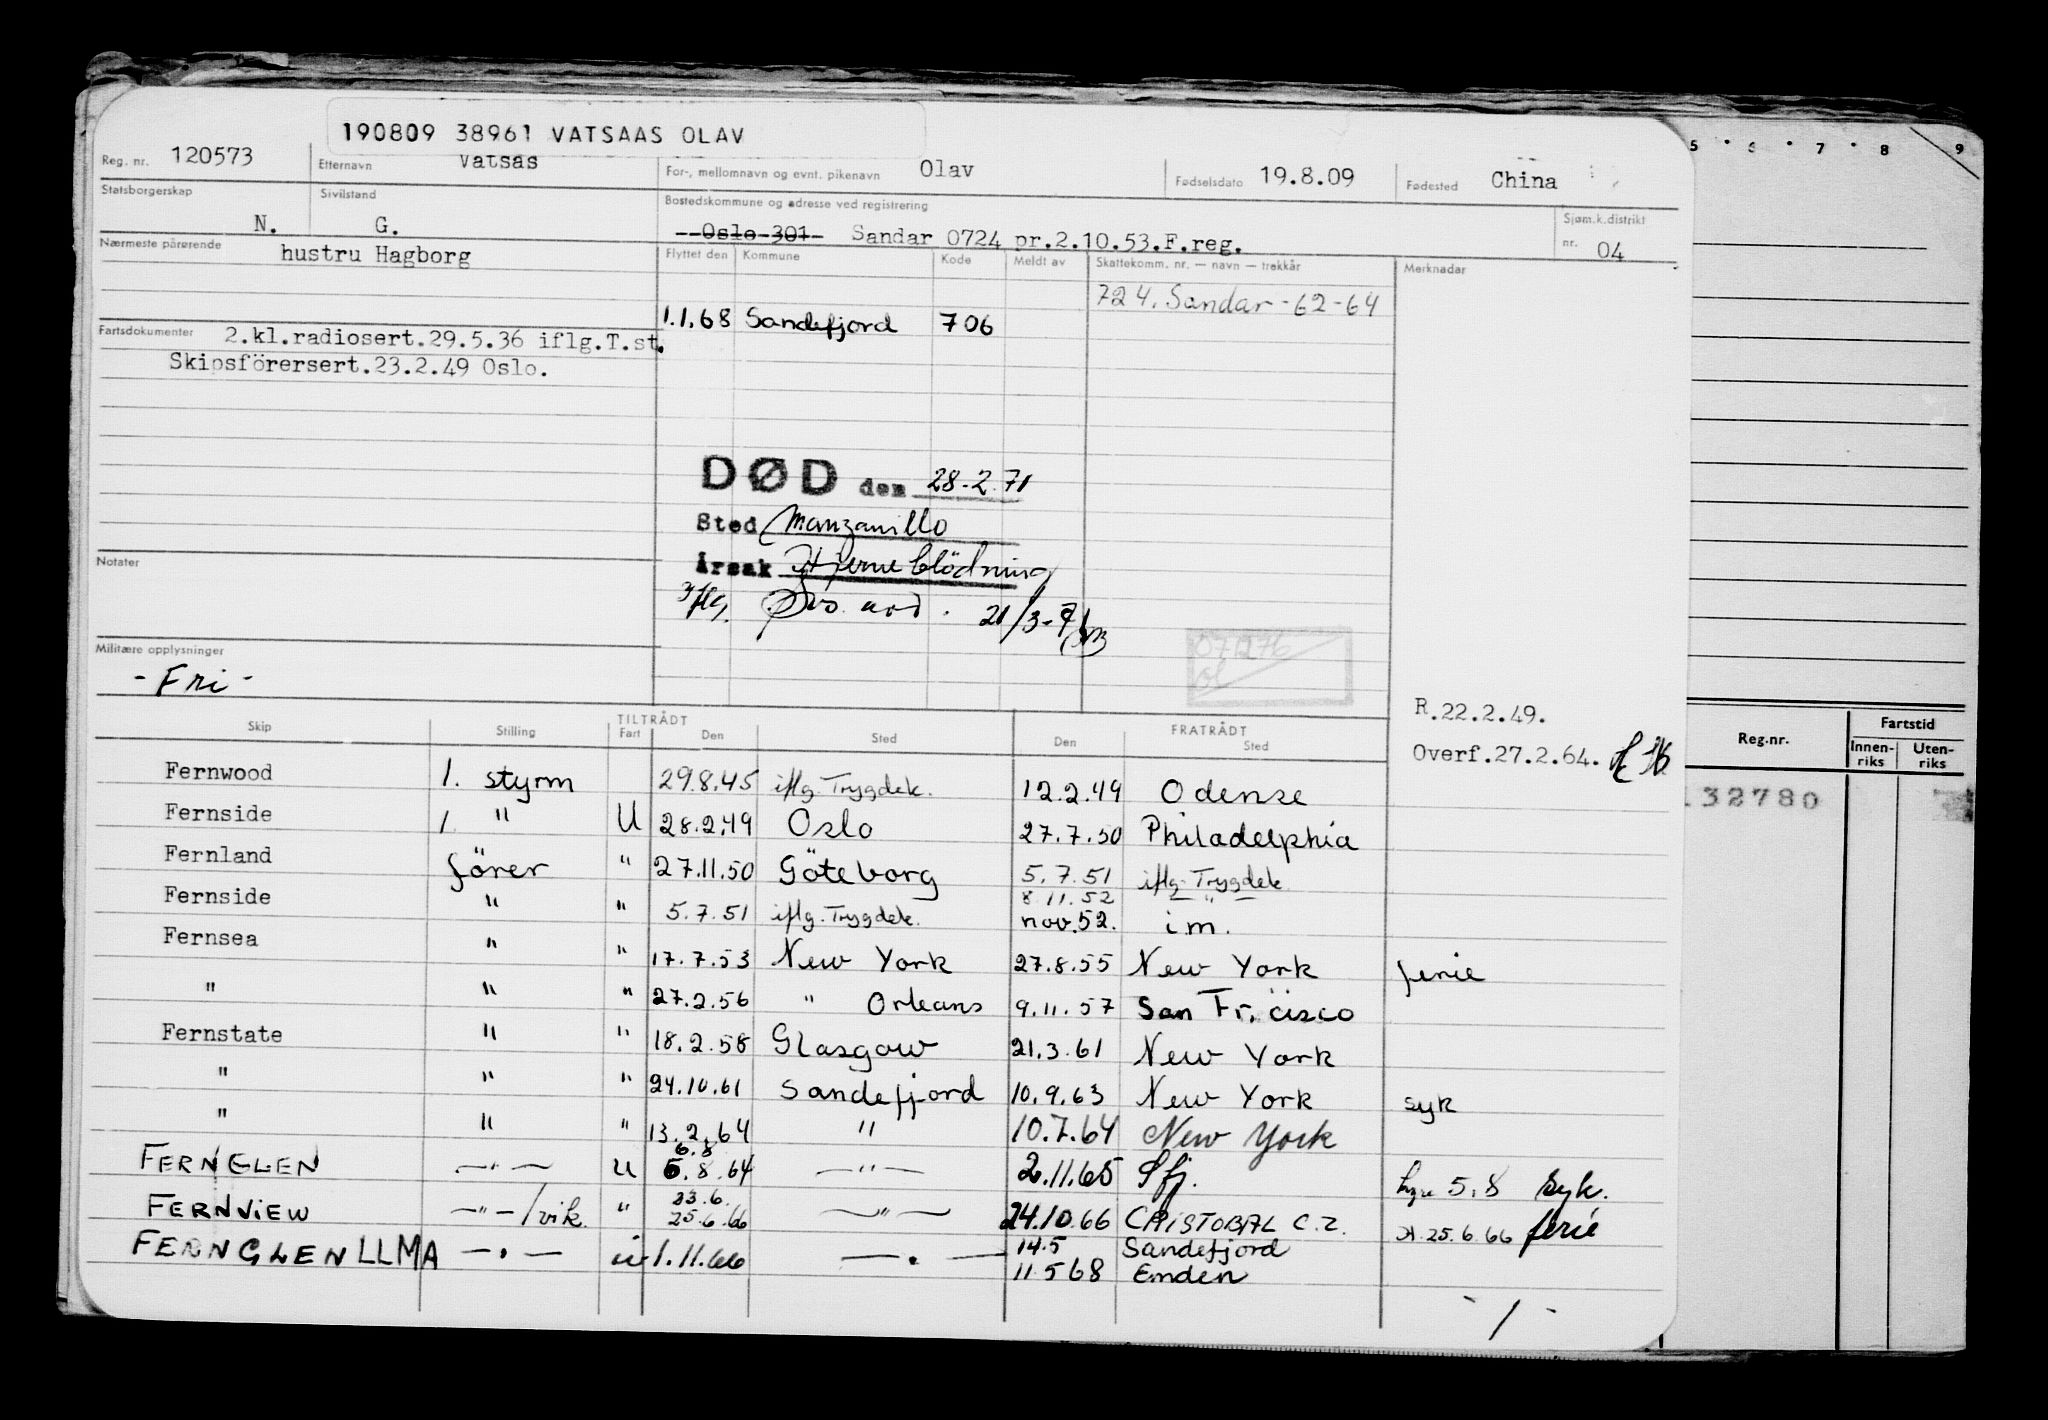 190809 38961 VATSAAS OLAV
Reg. nr. 120573 Etternavn Vatsås For-, mellomnavn og evnt. pikenavn Olav Fødselsdato 19.8.09 Fødested China
Statsborgerskap N. Sivilstand G. Bostedskommune og adresse ved registrering Oslo 301 Sandar 0724 pr.2.10.53.F.reg. Sjøm.k.distrikt nr. 04
Nærmeste pårørende hustru Hagborg
Flyttet den Kommune Kode Meldt av Skattekomm. nr. — navn — trekkår Merknader
724. Sandar -62-64
1.1.68 Sandefjord 706
Fartsdokumenter 2.kl.radiosert.29.5.36 iflg.T.st.
Skipsförersert.23.2.49 Oslo.
DØD den 28-2.71
Sted Manzanillo
Årsak Hjerneblödning
iflg. 21/3-71
071276
ol
Notater
Militære opplysninger
- Fri -
R.22.2.49.
Overf.27.2.64.
TILTRÅDT FRATRÅDT
Skip Stilling Fart Den Sted Den Sted
Fernwood 1. styrm 29.8.45 iflg. Trygdek. 12.2.49 Odense
Fernside 1. " U 28.2.49 Oslo 27.7.50 Philadelphia
Fernland förer " 27.11.50 Göteborg 5.7.51 iflg. Trygdek.
8.11.52 — " —
Fernside " " 5.7.51 iflg. Trygdek. nov.52. i.m.
Fernsea " " 17.7.53 New York 27.8.55 New York ferie
" " " 27.2.56 " Orleans 9.11.57 San Fr.cisco
Fernstate " " 18.2.58 Glasgow 21.3.61 New York
" " " 24.10.61 Sandefjord 10.9.63 New York syk
" " " 13.2.64 " 10.7.64 New York
6.8
FERNGLEN — " — U 6.8.64 — " — 2.11.65 Sfj. hyre 5.8 Syk.
23.6.
FERNVIEW — " — / vik. " 25.6.66 — " — 24.10.66 CRISTOBAL C.Z. 25.6.66 ferie
14.5 Sandefjord
FERNGLEN LLMA — " — u 1.11.66 — " — 11.5 68 Emden
- / -
5 6 7 8 9
Reg.nr. Fartstid
Innen-riks Uten-riks
132780